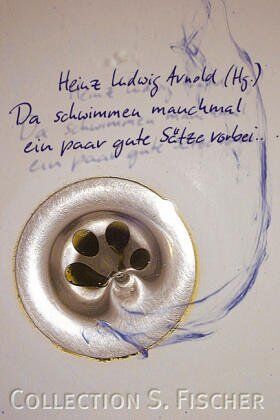 Heinz Ludwig Arnold (Hg.)
Da schwimmen manchmal
ein paar gute Sätze vorbei...
COLLECTION S. FISCHER